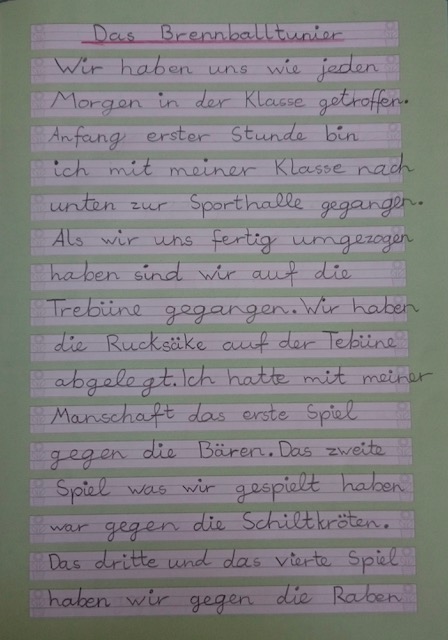 Das Brennballtunier
Wir haben uns wie jeden
Morgen in der Klasse getroffen.
Anfang erster Stunde bin
ich mit meiner Klasse nach
unten zur Sporthalle gegangen.
Als wir uns fertig umgezogen
haben sind wir auf die
Trebüne gegangen. Wir haben
die Rucksäke auf der Tebüne
abgelegt. Ich hatte mit meiner
Manschaft das erste Spiel
gegen die Bären. Das zweite
Spiel was wir gespielt haben
war gegen die Schiltkröten.
Das dritte und das vierte Spiel
haben wir gegen die Raben